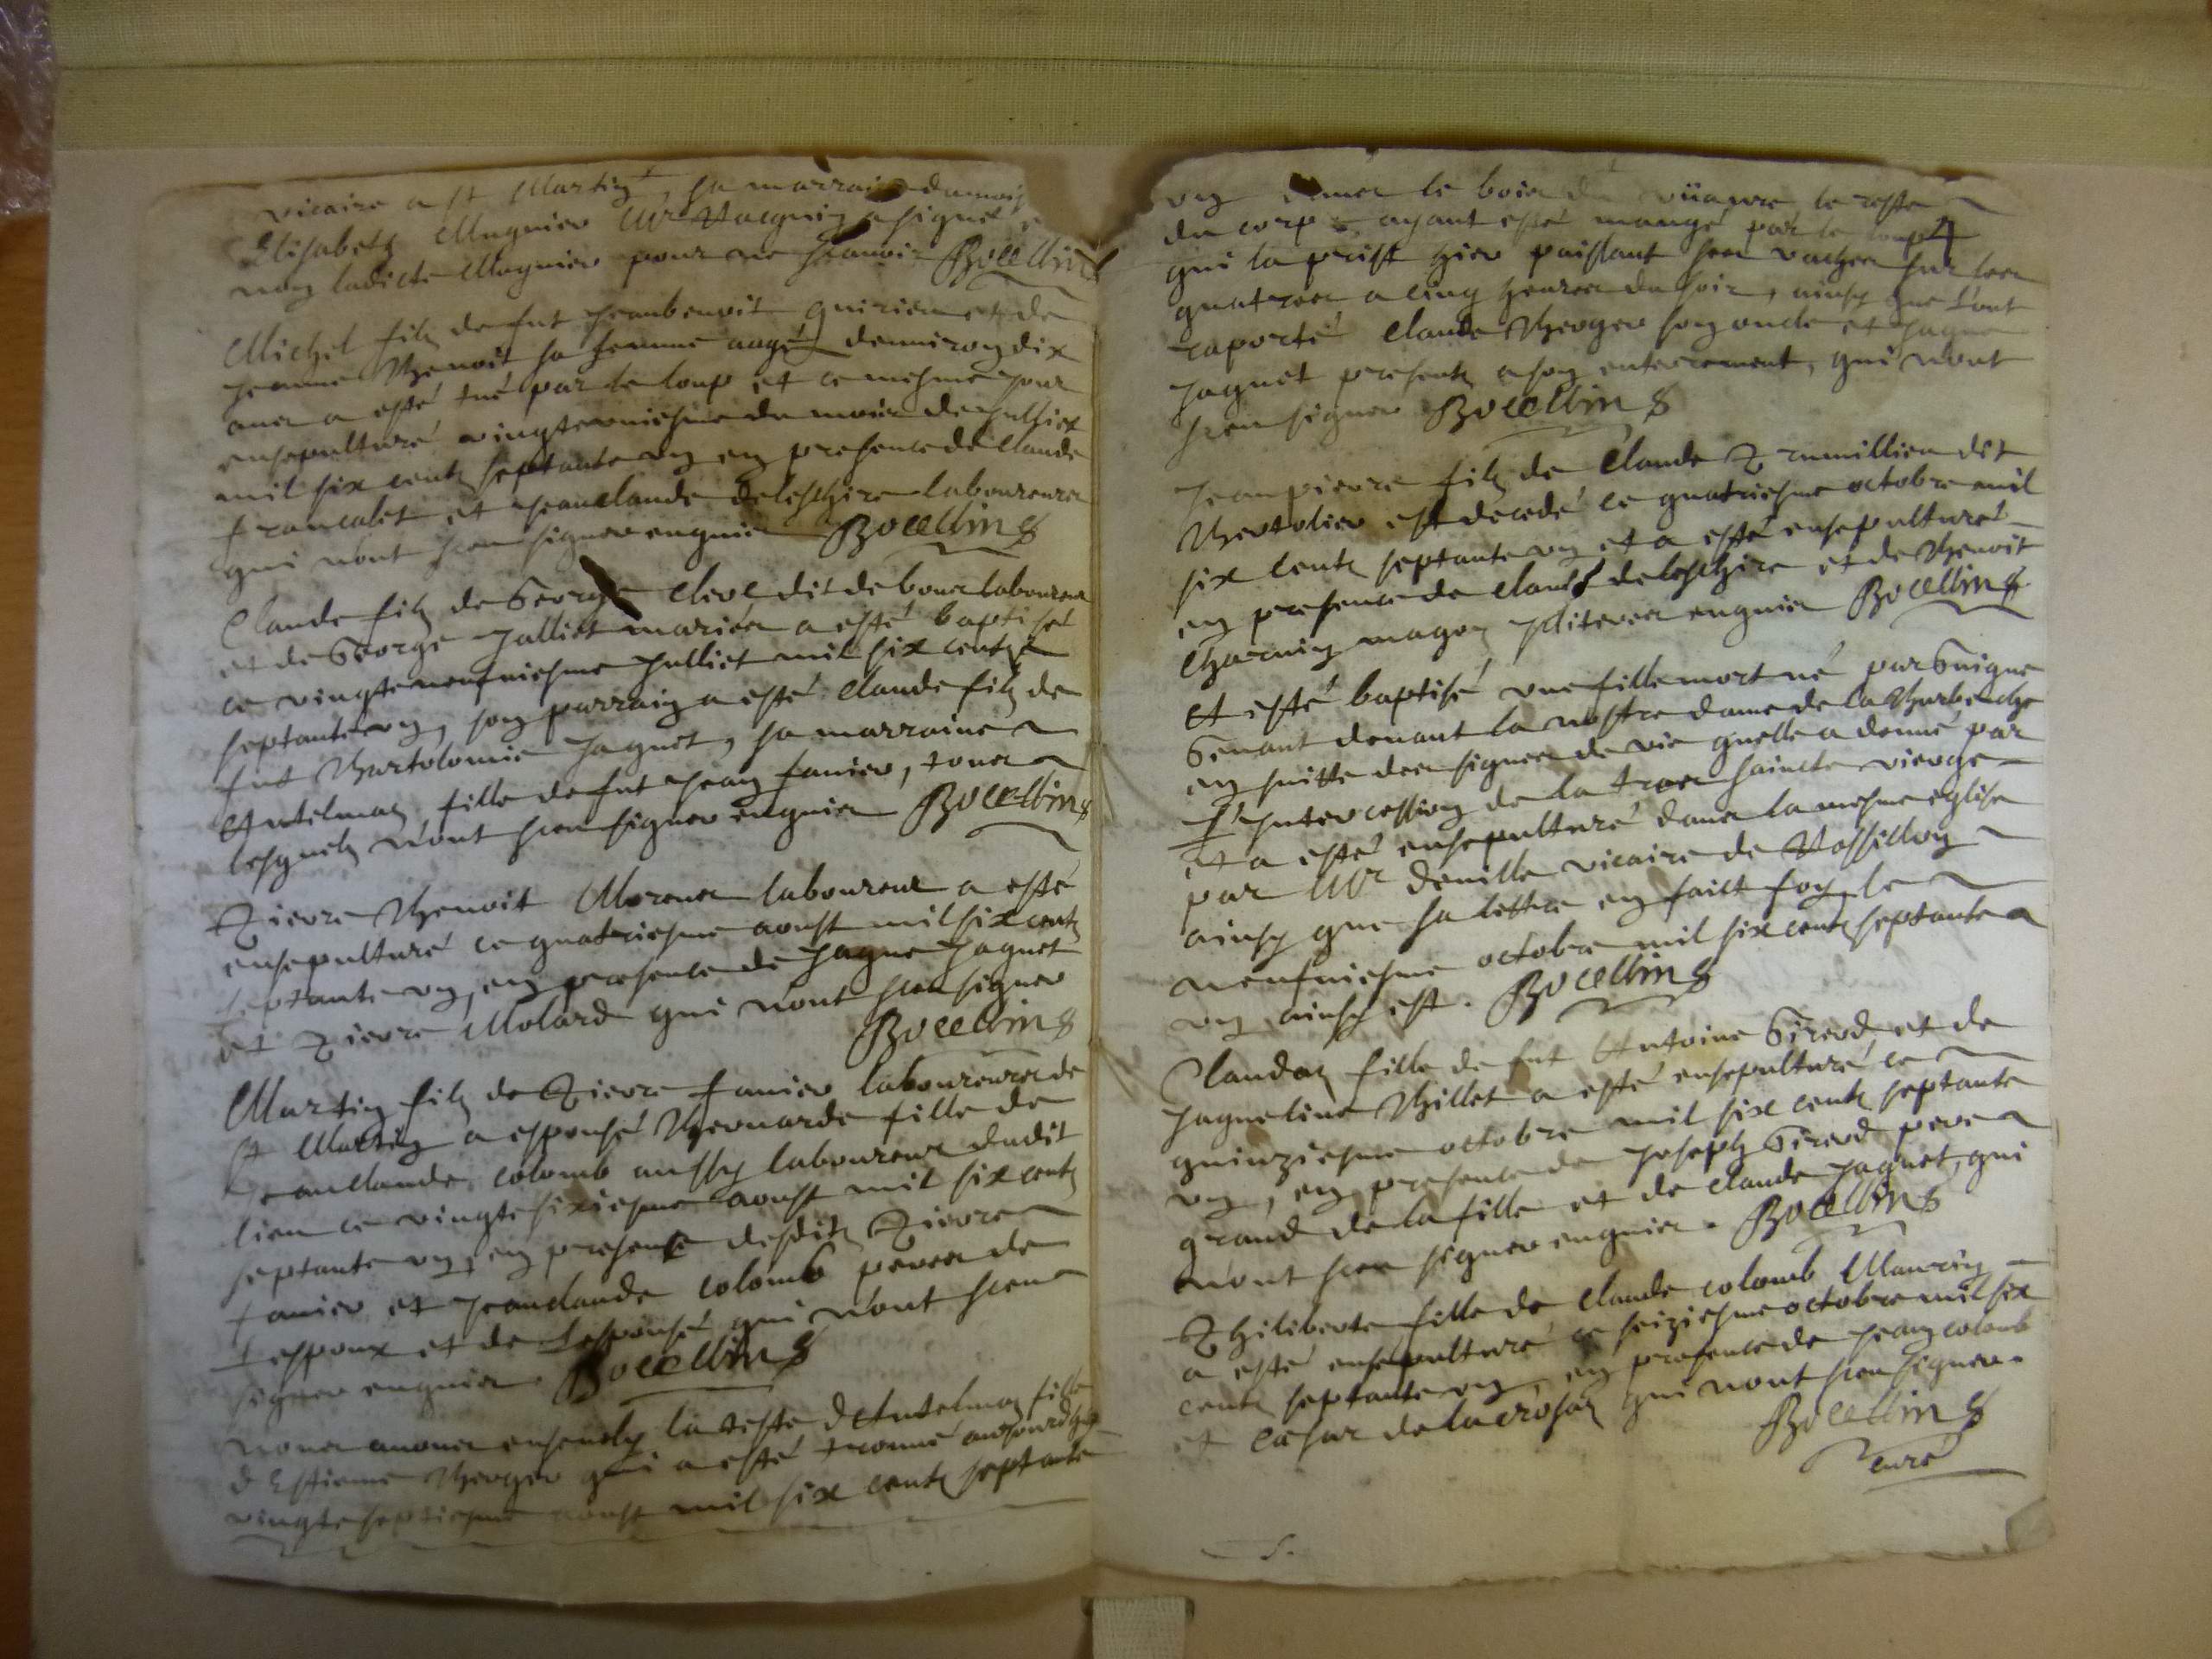 vicaire a st Martin, sa marraine damois
Elisabetz Mugnier Mr Vacquin a signé
non ladicte Mugnier pour ne scavoir Bocellin
Michel filz de fut Jeanbenoit Quirien et de
Jeanne Benoit sa femme aagé denniron dix
ans a esté tué par le loup et ce mesme jour
ensepulturé vingtuniesme du mois de julliet
mil six centz septante un en presence de Claude
francalet et Jeanclaude deleschire laboureurs
qui n'ont sceu signer enquis Bocellin
Claude filz de George Clerc dit debour laboureur
et de George Julliet mariés a esté baptisé
ce vingteneufuiesme Julliet mil six centz
septante un, son parrain a esté Claude filz de
fut Bartolomie Jaquet, sa marraine
Antelmaz fille de fut Jean fanier, tous
lesquelz n'ont sceu signer enquis Bocellin
Pierre Benoit Morener laboureur a esté
ensepulturé ce quatriesme aoust mil six centz
septante un, en presence de Jaque Jaquet
et Pierre Molard qui n'ont sceu signer
Bocellin
Martin filz de Pierre fanier laboureur de
st Martin a espousé Bernarde fille de
Jeanclaude colomb aussy laboureur dudit
lieu ce vingtesixiesme aoust mil six centz
septante un, en presence desditz Pierre
fanier et Jeanclaude colomb peres de
l'espoux et de l'espousé qui n'ont sceu
signer enquis. Bocellin
Nous auons enseuely la teste d'Antelmaz fille
d'Estienne Berger qui a esté trouué aujourd'huy
vingteseptiesme aoust mil six centz septante
un dans le bois de le reste
du corp ayant esté mangé par le loup
qui la prist hier paissant ses vaches sur les
quatres a cinq heures du soir, ainsy que l'ont
raporté Claude Berger son oncle et Jaque
Jaquet presentz a son enterrement, qui n'ont
sceu signer Bocellin
4
Jeanpierre filz de Claude Prumillien dit
Bertolier est decedé ce quatriesme octobre mil
six centz septante un et a esté ensepulturé
en presence de Claude deleschire et de Benoit
Charuin magon jlliteres enquis Bocellin
A esté baptisé une fille mort né par Guigue
Genant deuant la nostre dame de la Burbenche
en suitte des signes de vie quelle a donné par
l'Intercession de la tres saincte vierge
et a esté ensepulturé dans la mesme eglise
par Mr Deuille vicaire de Vossillon
ainsy que sa lettre en faict foy, le
neufuiesme octobre mil six centz septante
un, ainsy est. Bocellin
Claudaz fille de fut Antoine Girerd et de
Jaqueline Billet a esté ensepulturé ce
quinziesme octobre mil six centz septante
un, en presence de Joseph Girerd pere
grand de la fille et de Claude Jaquet, qui
n'ont sceu signer enquis. Bocellin
Philiberte fille de Claude colomb Maurin
a esté ensepulturé ce seiziesme octobre mil six
centz septante un en presence de Jean colomb
et Cesar de lacrosaz qui n'ont sceu signer.
Bocellin
curé